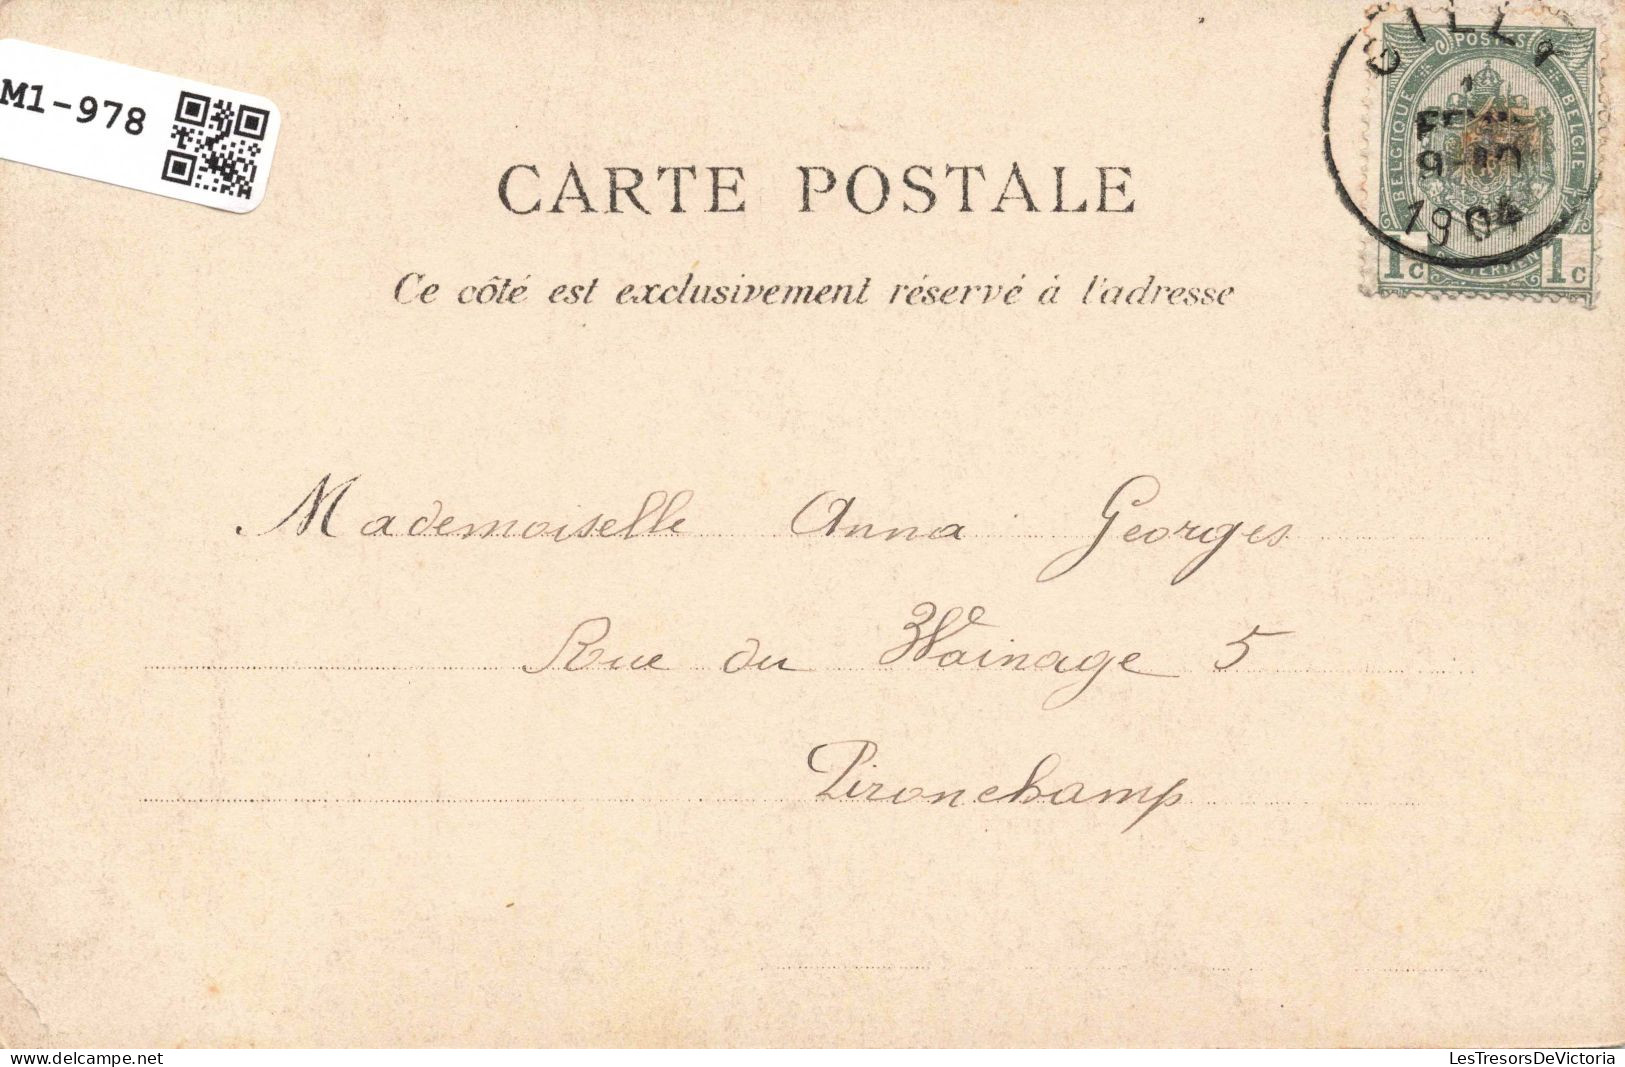 M1-978
GILLY
1
9-10
1904
POSTES
BELGIQUE BELGIE
1c 1c
CARTE POSTALE
Ce côté est exclusivement réservé à l'adresse
Mademoiselle Anna Georges
Rue du Wainage 5
Pironchamp
LesTresorsDeVictoria
www.delcampe.net